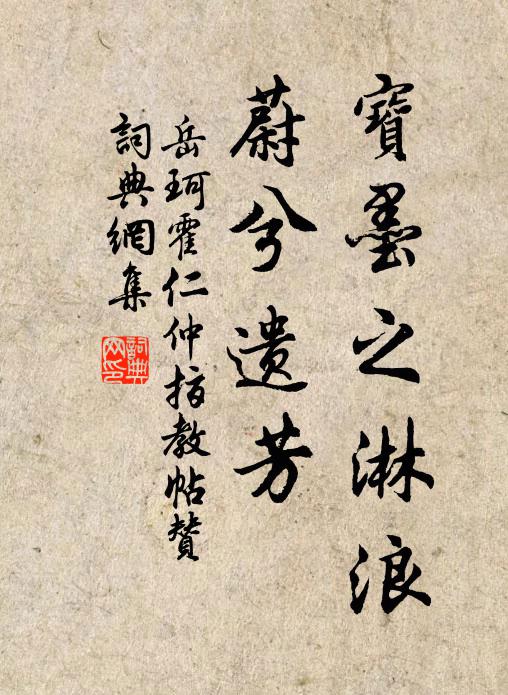 寶墨之淋浪
蔚兮遺芳
岳珂霍仁仲指教帖贊
詞典網集
詞典
网印